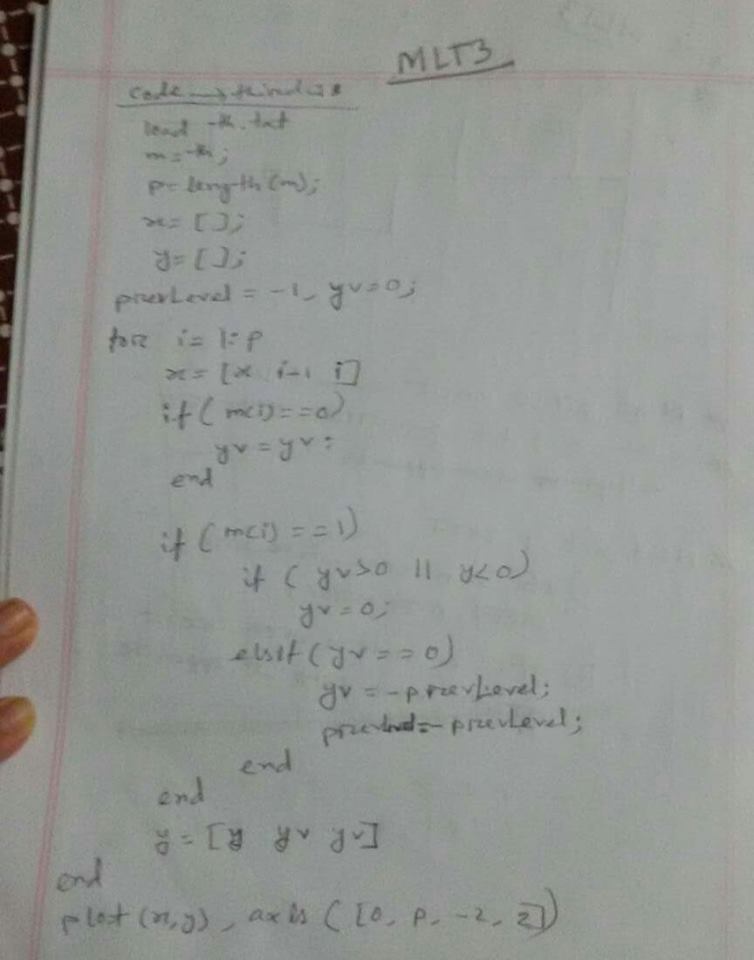 MLT3
code → third is
load th.txt
m=th;
p=length(m);
x=[];
y=[];
prevLevel = -1, yv=0;
for i = 1:p
x=[x i-1 i]
if( m(i)==0)
yv=yv;
end
if (m(i)==1)
if ( yv>0 || y<0)
yv=0;
elsif(yv==0)
yv=-prevLevel;
prevLevel=-prevLevel;
end
end
y=[y yv yv]
end
plot(x,y), axis ([0, p, -2, 2])